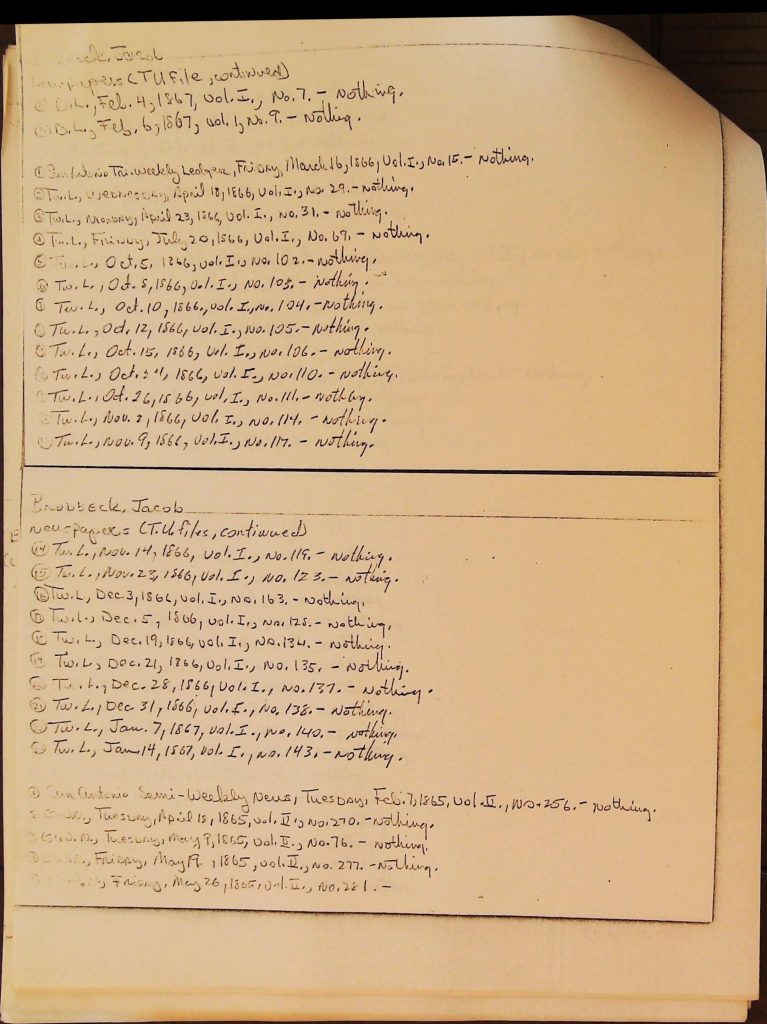 Jacob
(TU File, continued)
D.L., Feb. 4, 1867, Vol. I., No. 7. - Nothing.
D.L., Feb. 6, 1867, Vol. 1, No. 9. - Nothing.
① San Antonio Tri-Weekly Ledger, Friday, March 16, 1866, Vol. I., No. 15. - Nothing.
② Tw.L., Wednesday, April 18, 1866, Vol. I., No. 29. - Nothing.
③ Tw.L., Monday, April 23, 1866, Vol. I., No. 31. - Nothing.
④ Tw.L., Friday, July 20, 1866, Vol. I., No. 69. - Nothing.
⑤ Tw. L., Oct. 5, 1866, Vol. I., No. 102. - Nothing.
⑥ Tw. L., Oct. 8, 1866, Vol. I., No. 103. - Nothing.
⑦ Tw. L., Oct. 10, 1866, Vol. I., No. 104. - Nothing.
Tw. L., Oct. 12, 1866, Vol. I., No. 105. - Nothing.
Tw. L., Oct. 15, 1866, Vol. I., No. 106. - Nothing.
Tw. L., Oct. 24, 1866, Vol. I., No. 110. - Nothing.
Tw. L., Oct. 26, 1866, Vol. I., No. 111. - Nothing.
Tw. L., Nov. 2, 1866, Vol. I., No. 114. - Nothing.
Tw. L., Nov. 9, 1866, Vol. I., No. 117. - Nothing.
Brodbeck, Jacob
Newspapers (TU files, continued)
⑭ Tw. L., Nov. 14, 1866, Vol. I., No. 119. - Nothing.
⑮ Tw. L., Nov. 23, 1866, Vol. I., No. 123. - Nothing.
⑯ Tw. L., Dec. 3, 1866, Vol. I., No. 163. - Nothing.
⑰ Tw. L., Dec. 5, 1866, Vol. I., No. 128. - Nothing.
⑱ Tw. L., Dec. 19, 1866, Vol. I., No. 134. - Nothing.
⑲ Tw. L., Dec. 21, 1866, Vol. I., No. 135. - Nothing.
⑳ Tw. L., Dec. 28, 1866, Vol. I., No. 137. - Nothing.
㉑ Tw. L., Dec 31, 1866, Vol. I., No. 138. - Nothing.
Tw. L., Jan. 7, 1867, Vol. I., No. 140. - Nothing.
Tw. L., Jan. 14, 1867, Vol. I., No. 143. - Nothing.
① San Antonio Semi-Weekly News, Tuesday, Feb. 7, 1865, Vol. II., No. 256. - Nothing.
Tuesday, April 18, 1865, Vol. II., No. 270. - Nothing.
Tuesday, May 9, 1865, Vol. II., No. 76. - Nothing.
Friday, May 1865, Vol. II., No. 277. - Nothing.
Friday, May 26, 1865, Vol. II., No. 281. -